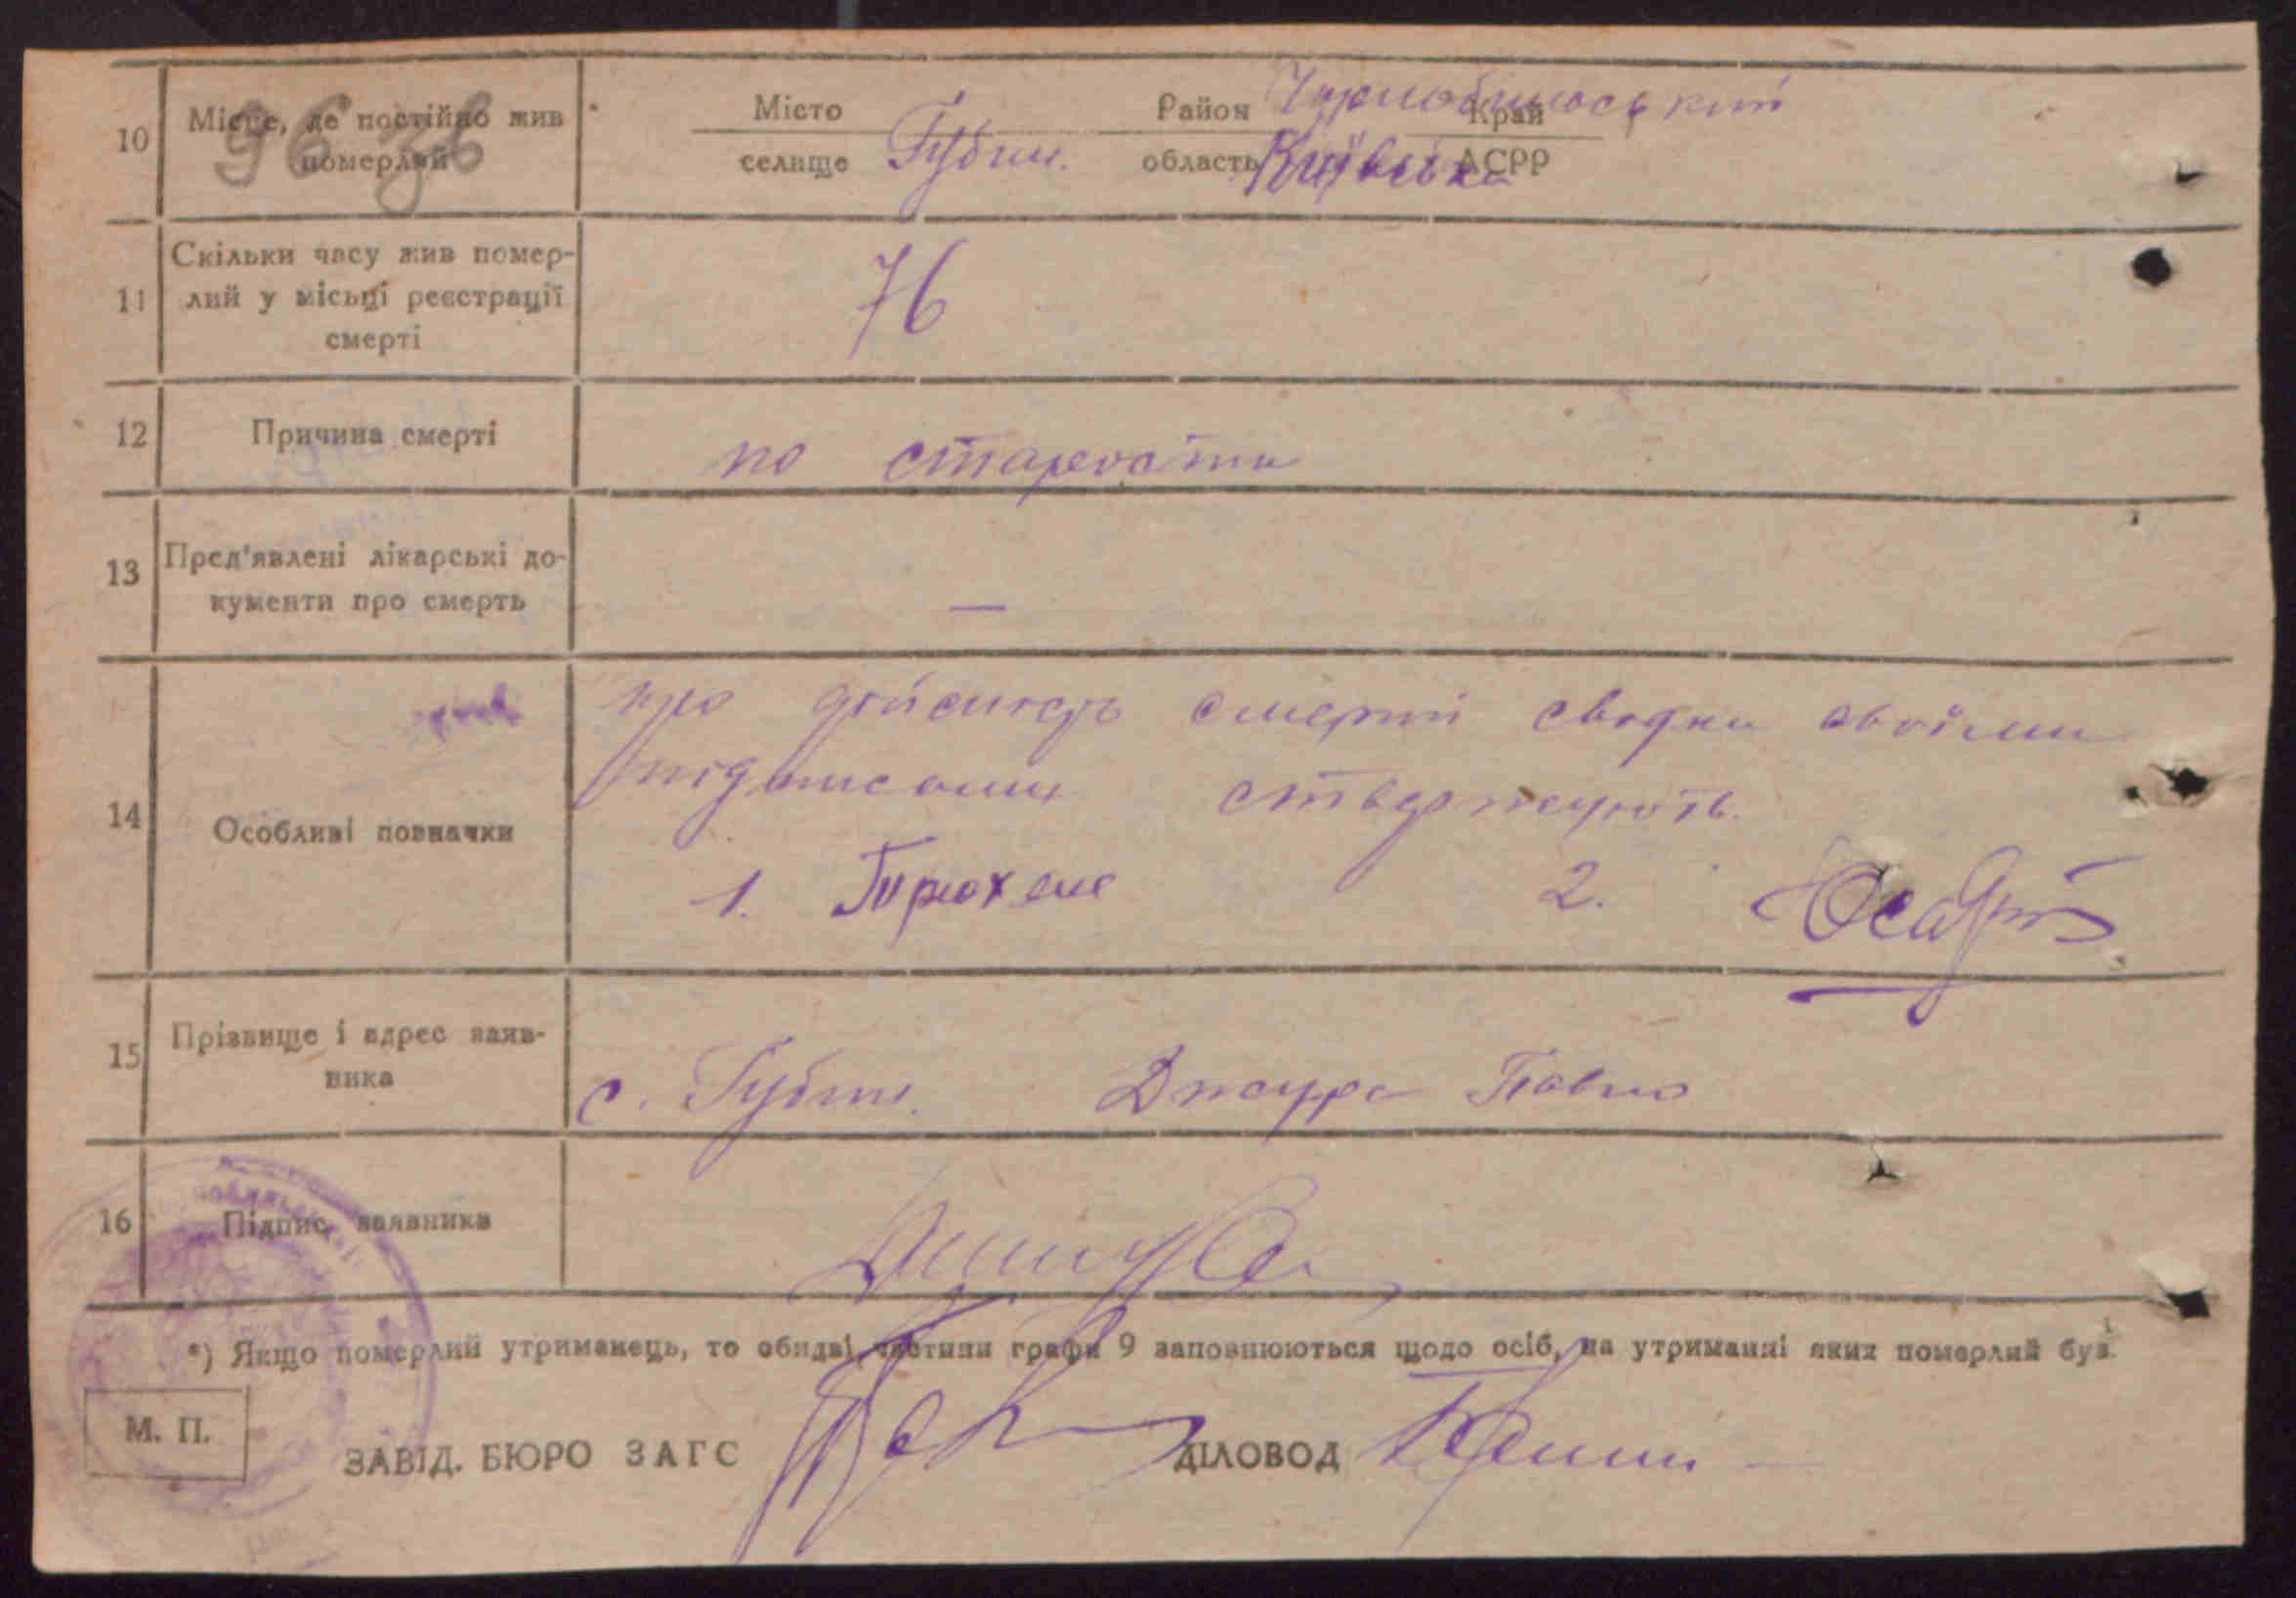 10 Місце, де постійно жив померлий
96 зв
Місто Район Чорнобильський Край
селище Губин. область Київська АСРР
11 Скільки часу жив помер-
лий у місьці реєстрації
смерті
76
12 Причина смерті
по старости
13 Пред'явлені лікарські до-
кументи про смерть
—
14 Особливі повначки
про дійсність смерті свідки своїми
підписами стверджують.
1. 2.
15 Прізвище і адрес заяв-
ника
с. Губин. Джура Павло
16 Підпис заявника
*) Якщо померлий утриманець, то обидві частини графи 9 заповнюються щодо осіб, на утриманні яких померлий був.
М. П.
ЗАВІД. БЮРО ЗАГС ДІЛОВОД